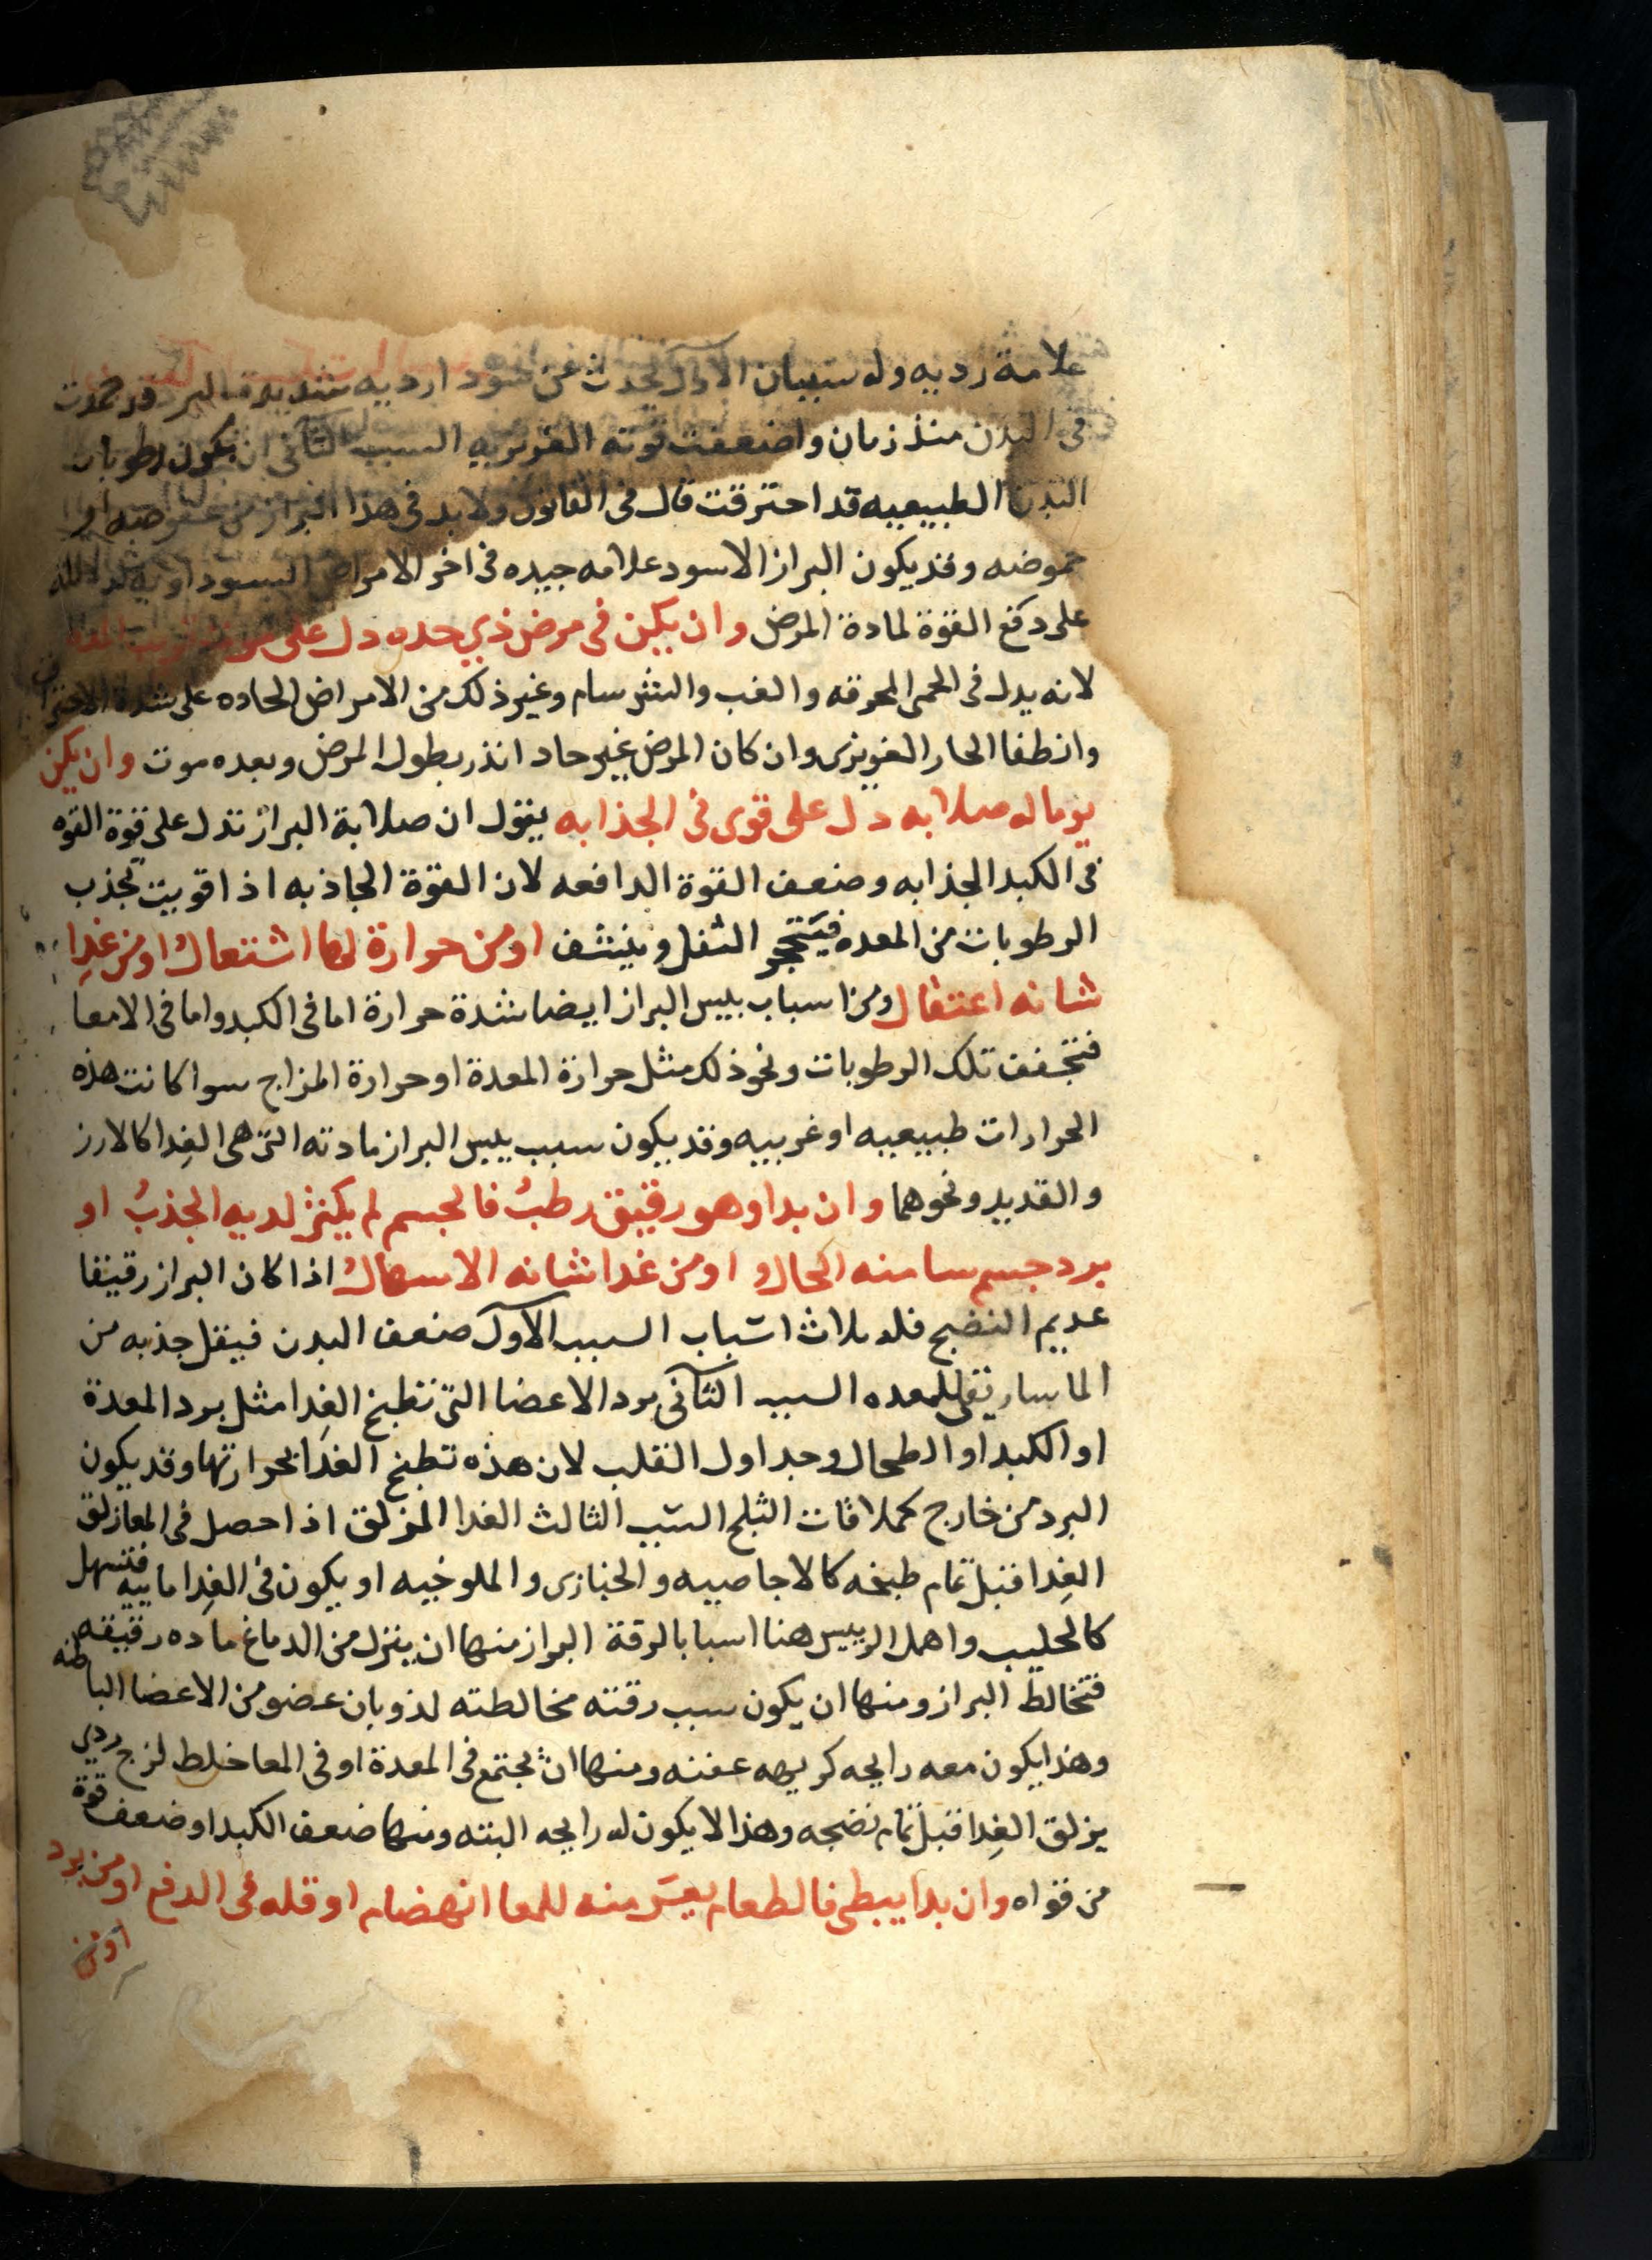 علامة رديه وله سببان الآول يحدث عن سودا رديه شديدة البرد قد جمدت
فى البدن منذ زمان واضعفت قوته الغريزيه السبب الثآنى ان يكون رطوبات
البدن الطبيعيه قد احترقت قال فى القانون ولا بد فى هذا البراز من عفوصه او
حموضه وقد يكون البراز الاسود علامه جيده فى اخر الامراض السوداويه لدلالته
على دفع القوة لمادة المرض وان يكن فى مرض ذي حده دل على موت قريب المده
لانه يدل فى الحمى المحرقه والغب والشرسام وغير ذلك من الامراض الحاده على شدة الاحتراق
وانطفا الحار الغريزى وان كان المرض غير حاد انذر بطول المرض وبعده موت وان يكن
يوما له صلابه دل على قوى فى الجذابه يقول ان صلابة البراز تدل على قوة القوه
فى الكبد الجذابه وضعف القوة الدافعه لان القوة الجاذبه اذا قويت تجذب
الرطوبات من المعده فيتحجر الثفل وينشف او من حرارة لها اشتعال او من غدا
شانه اعتقال ومن اسباب يبس البراز ايضا شدة حرارة اما فى الكبد واما فى الامعا
فتجفف تلك الرطوبات ونحو ذلك مثل حرارة المعدة او حرارة المزاج سوا كانت هذه
الحرارات طبيعيه او غريبه وقد يكون سبب يبس البراز مادته التى هى الغدا كالارز
والقديد ونحوهما وان بدا وهو رقيق رطب فالجسم لم يكثر لديه الجذب او
برد جسم سا منه الحال او من غدا شانه الاسهال اذا كان البراز رقيقا
عديم النضج فله ثلاث اسباب السبب الآول ضعف البدن فيقل جذبه من
الماساريقى للمعده السبب الثآنى برد الاعضا التى تطبخ الغدا مثل برد المعدة
او الكبد او الطحال وجداول القلب لان هذه تطبخ الغدا بحرارتها وقد يكون
البرد من خارج كملاقات الثلج السبب الثالث الغدا المزلق اذا حصل فى المعا زلق
الغدا قبل تمام طبخه كالاجاصيه والخبازى والملوخيه او يكون فى الغدا ماييه فتسهل
كالحليب واهمل الرييس هنا اسبابا لرقة البراز منها ان ينزل من الدماغ ماده رقيقه
فتخالط البراز ومنها ان يكون سبب رقته مخالطته لذوبان عضو من الاعضا الباطنه
وهذا يكون معه رايحه كريهه عفنه ومنها ان يجتمع فى المعدة او فى المعا خلط لزج ردي
يزلق الغدا قبل تمام نضجه وهذا لا يكون له رايحه البته ومنها ضعف الكبد او ضعف قوة
من قواه وان بدا يبطى فالطعام يعسر منه للمعا انهضام او قله فى الدفع او من برد
اومن